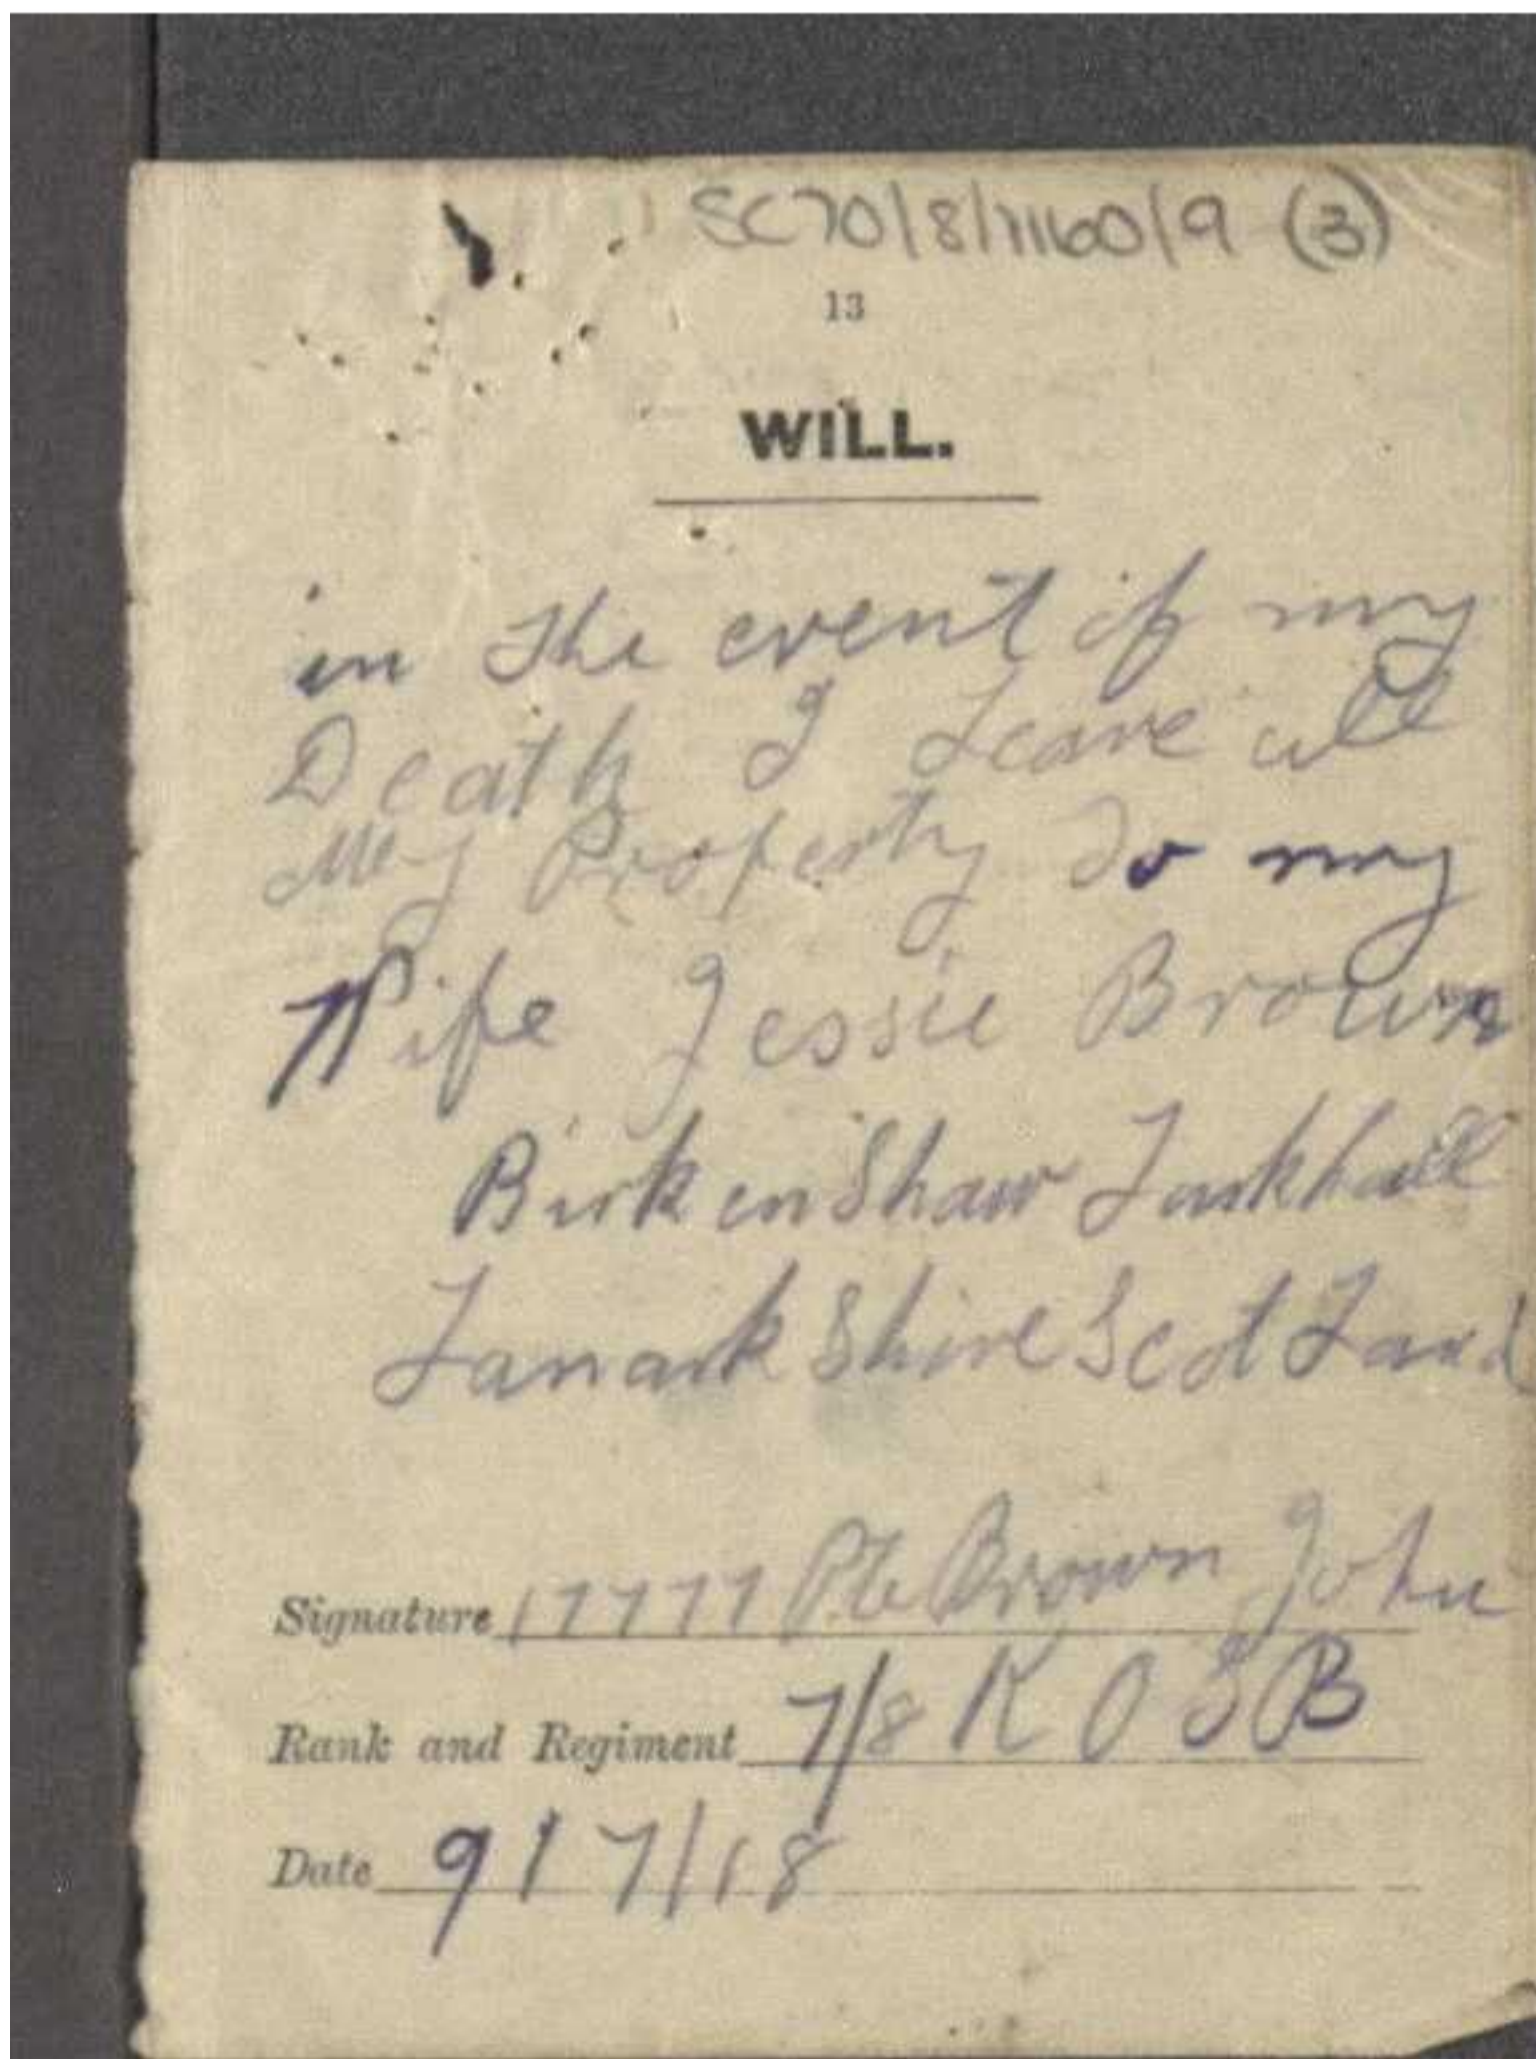 SC70/8/1160/9 (3)
13
WILL.
in the event of my
Death I Leave all
My Property To my
Wife Jessie Brown
Birkenshaw Larkhall
Lanark Shire Scot Land
Signature 17777 Pte Brown John
Rank and Regiment 7/8 K O S B
Date 9/7/18